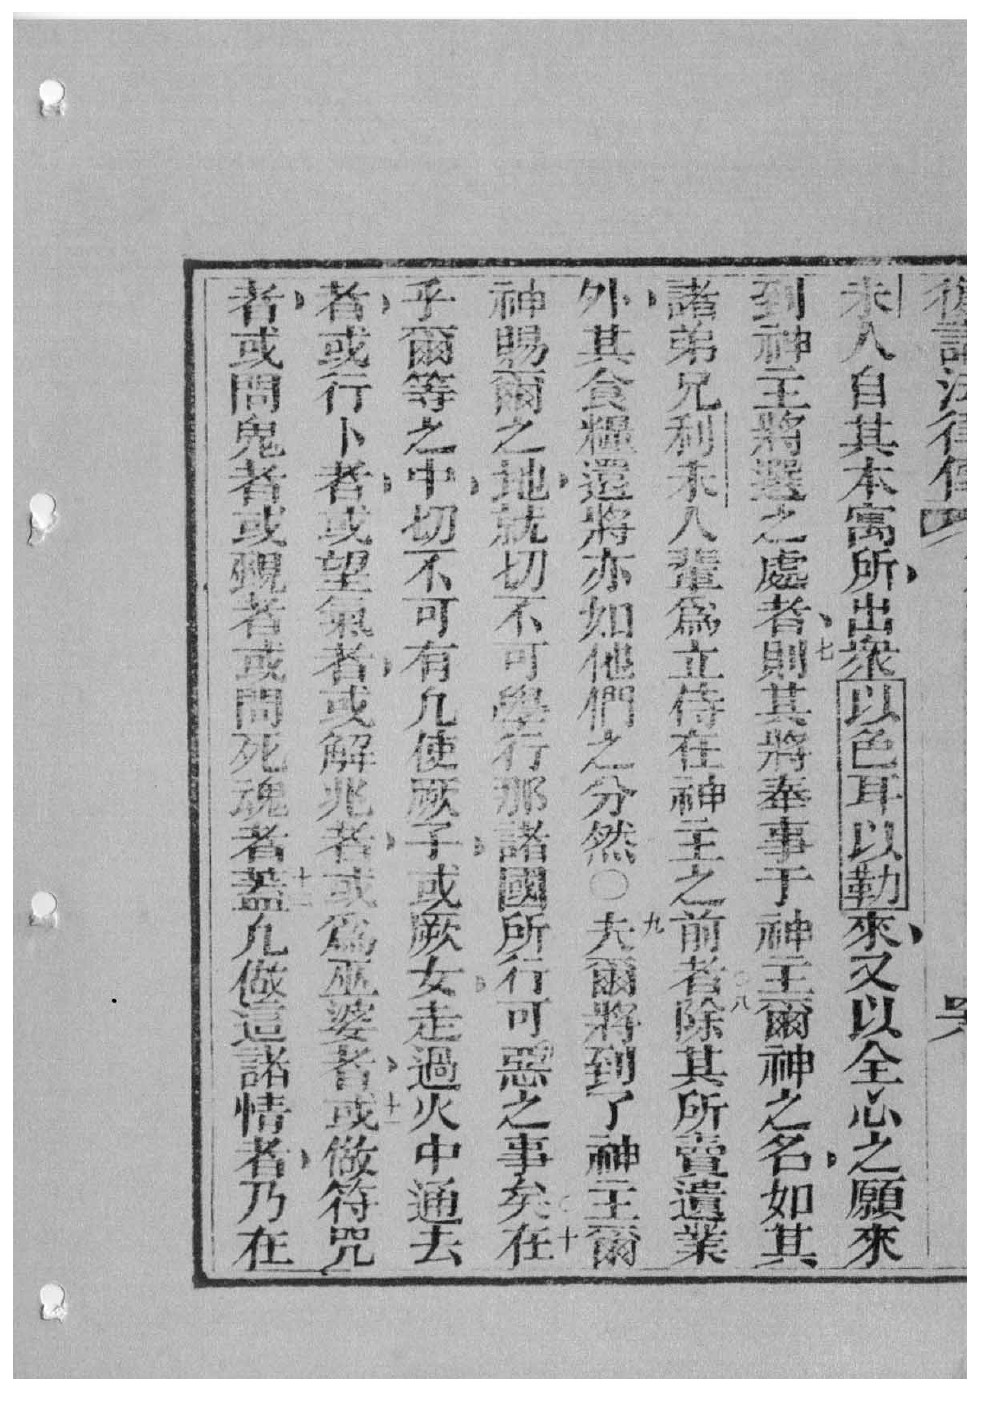 復講法律傳
未人自其本寓所出衆以色耳以勒來又以全心之願來
到神主將選之處者七則其將奉事于神主爾神之名如其
諸弟兄利未人輩爲立侍在神主之前者八除其所賣遺業
外其食糧還將亦如他們之分然〇九夫爾將到了神主爾
神賜爾之地就切不可學行那諸國所行可惡之事矣十在
乎爾等之中切不可有凡使厥子或厥女走過火中通去
者或行卜者或望氣者或解兆者或爲巫婆者十一或做符咒
者或問鬼者或覡者或問死魂者十二蓋凡做這諸情者乃在